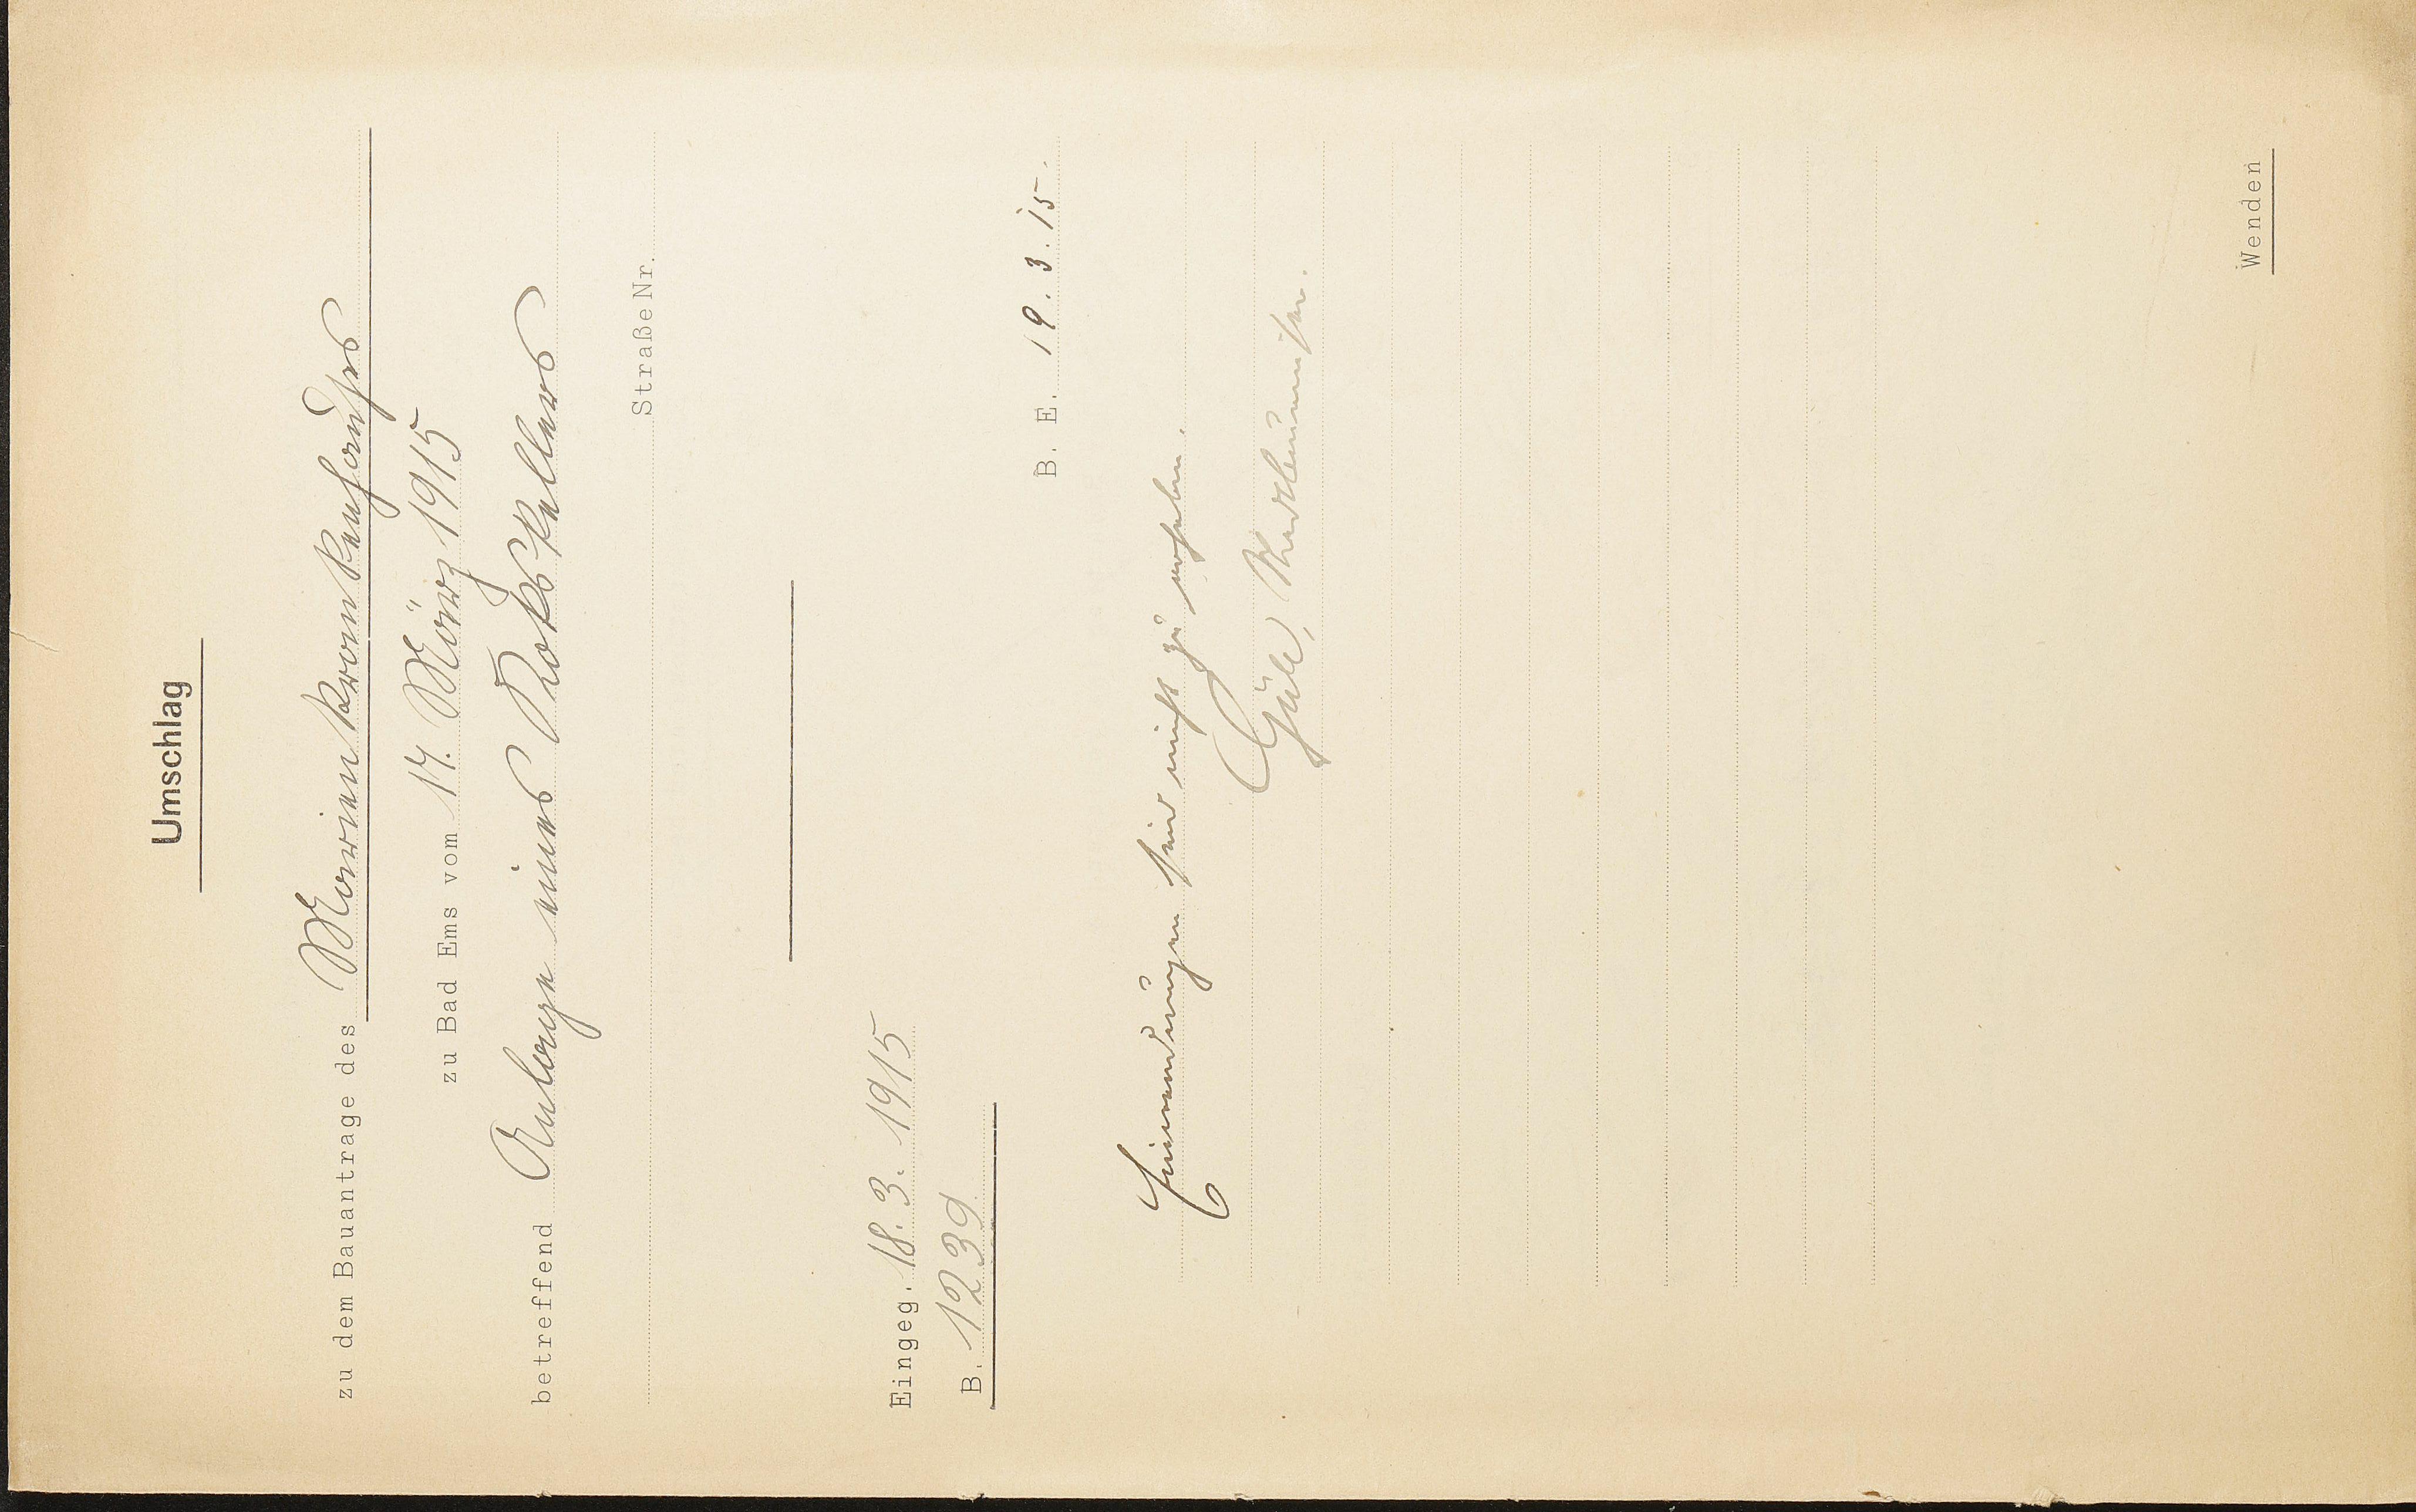 Umschlag
zu dem Bauantrage des Marienkrankenhauses
zu Bad Ems vom 17. März 1915
betreffend Anlage eines Kokskellers
Straße Nr.
Eingeg. 18. 3. 1915
B. 1239
B. E. 19. 3. 15.
Einwendungen sind nicht zu erheben.
Stadtbaumeister.
Wenden